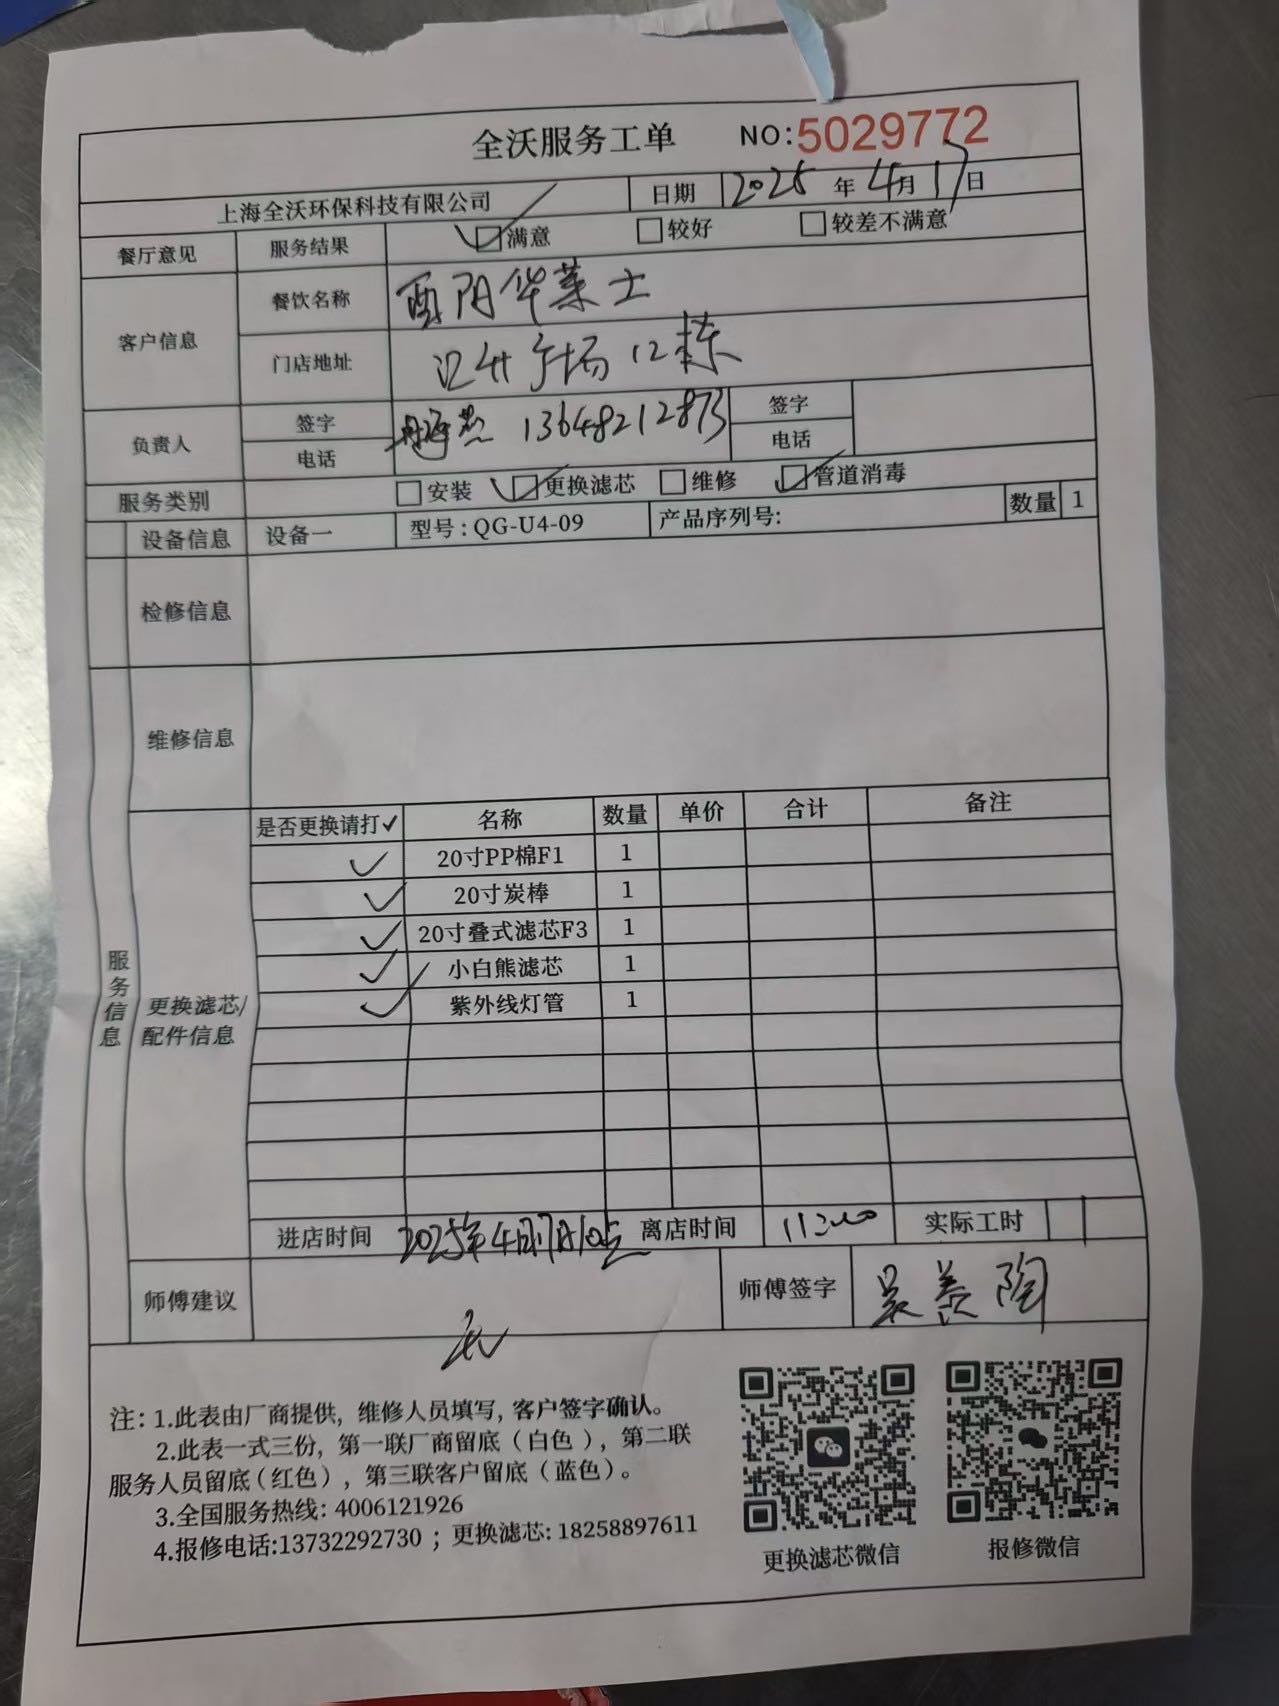 全沃服务工单 NO:5029772
上海全沃环保科技有限公司 日期 2025年4月17日
餐厅意见 服务结果 满意 较好 较差不满意
客户信息 餐饮名称 酉阳华莱士
门店地址 广场12栋
负责人 签字 电话 13648212873 签字 电话
服务类别 安装 更换滤芯 维修 管道消毒
设备信息 设备一 型号:QG-U4-09 产品序列号: 数量 1
检修信息
维修信息
服务信息
更换滤芯/配件信息
是否更换请打✓ 名称 数量 单价 合计 备注
✓ 20寸PP棉F1 1
✓ 20寸炭棒 1
✓ 20寸叠式滤芯F3 1
✓ 小白熊滤芯 1
✓ 紫外线灯管 1
进店时间 2025年4月17日10点 离店时间 实际工时 1
师傅建议 无 师傅签字
注: 1.此表由厂商提供, 维修人员填写, 客户签字确认。
2.此表一式三份, 第一联厂商留底(白色), 第二联
服务人员留底(红色), 第三联客户留底(蓝色)。
3.全国服务热线: 4006121926
4.报修电话:13732292730; 更换滤芯: 18258897611
更换滤芯微信 报修微信